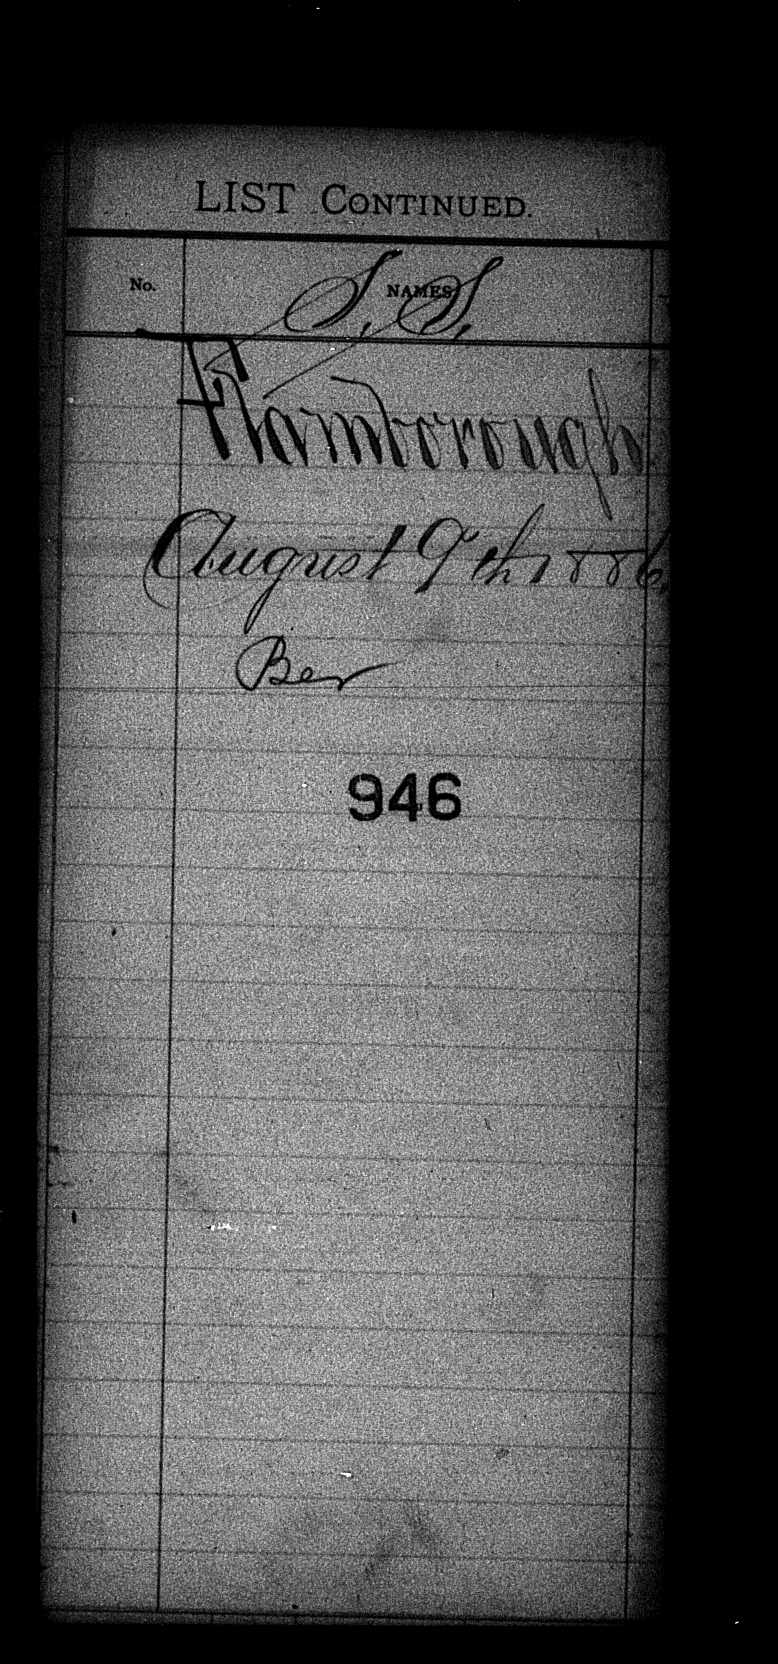 LIST CONTINUED.
No. NAMES
S. S.
Flamborough
August 9th 1886.
Ber
946